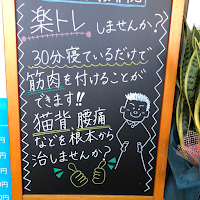 楽トレ しませんか?
30分寝ているだけで
筋肉を付けることが
できます!!
猫背、腰痛
などを根本から
治しませんか?